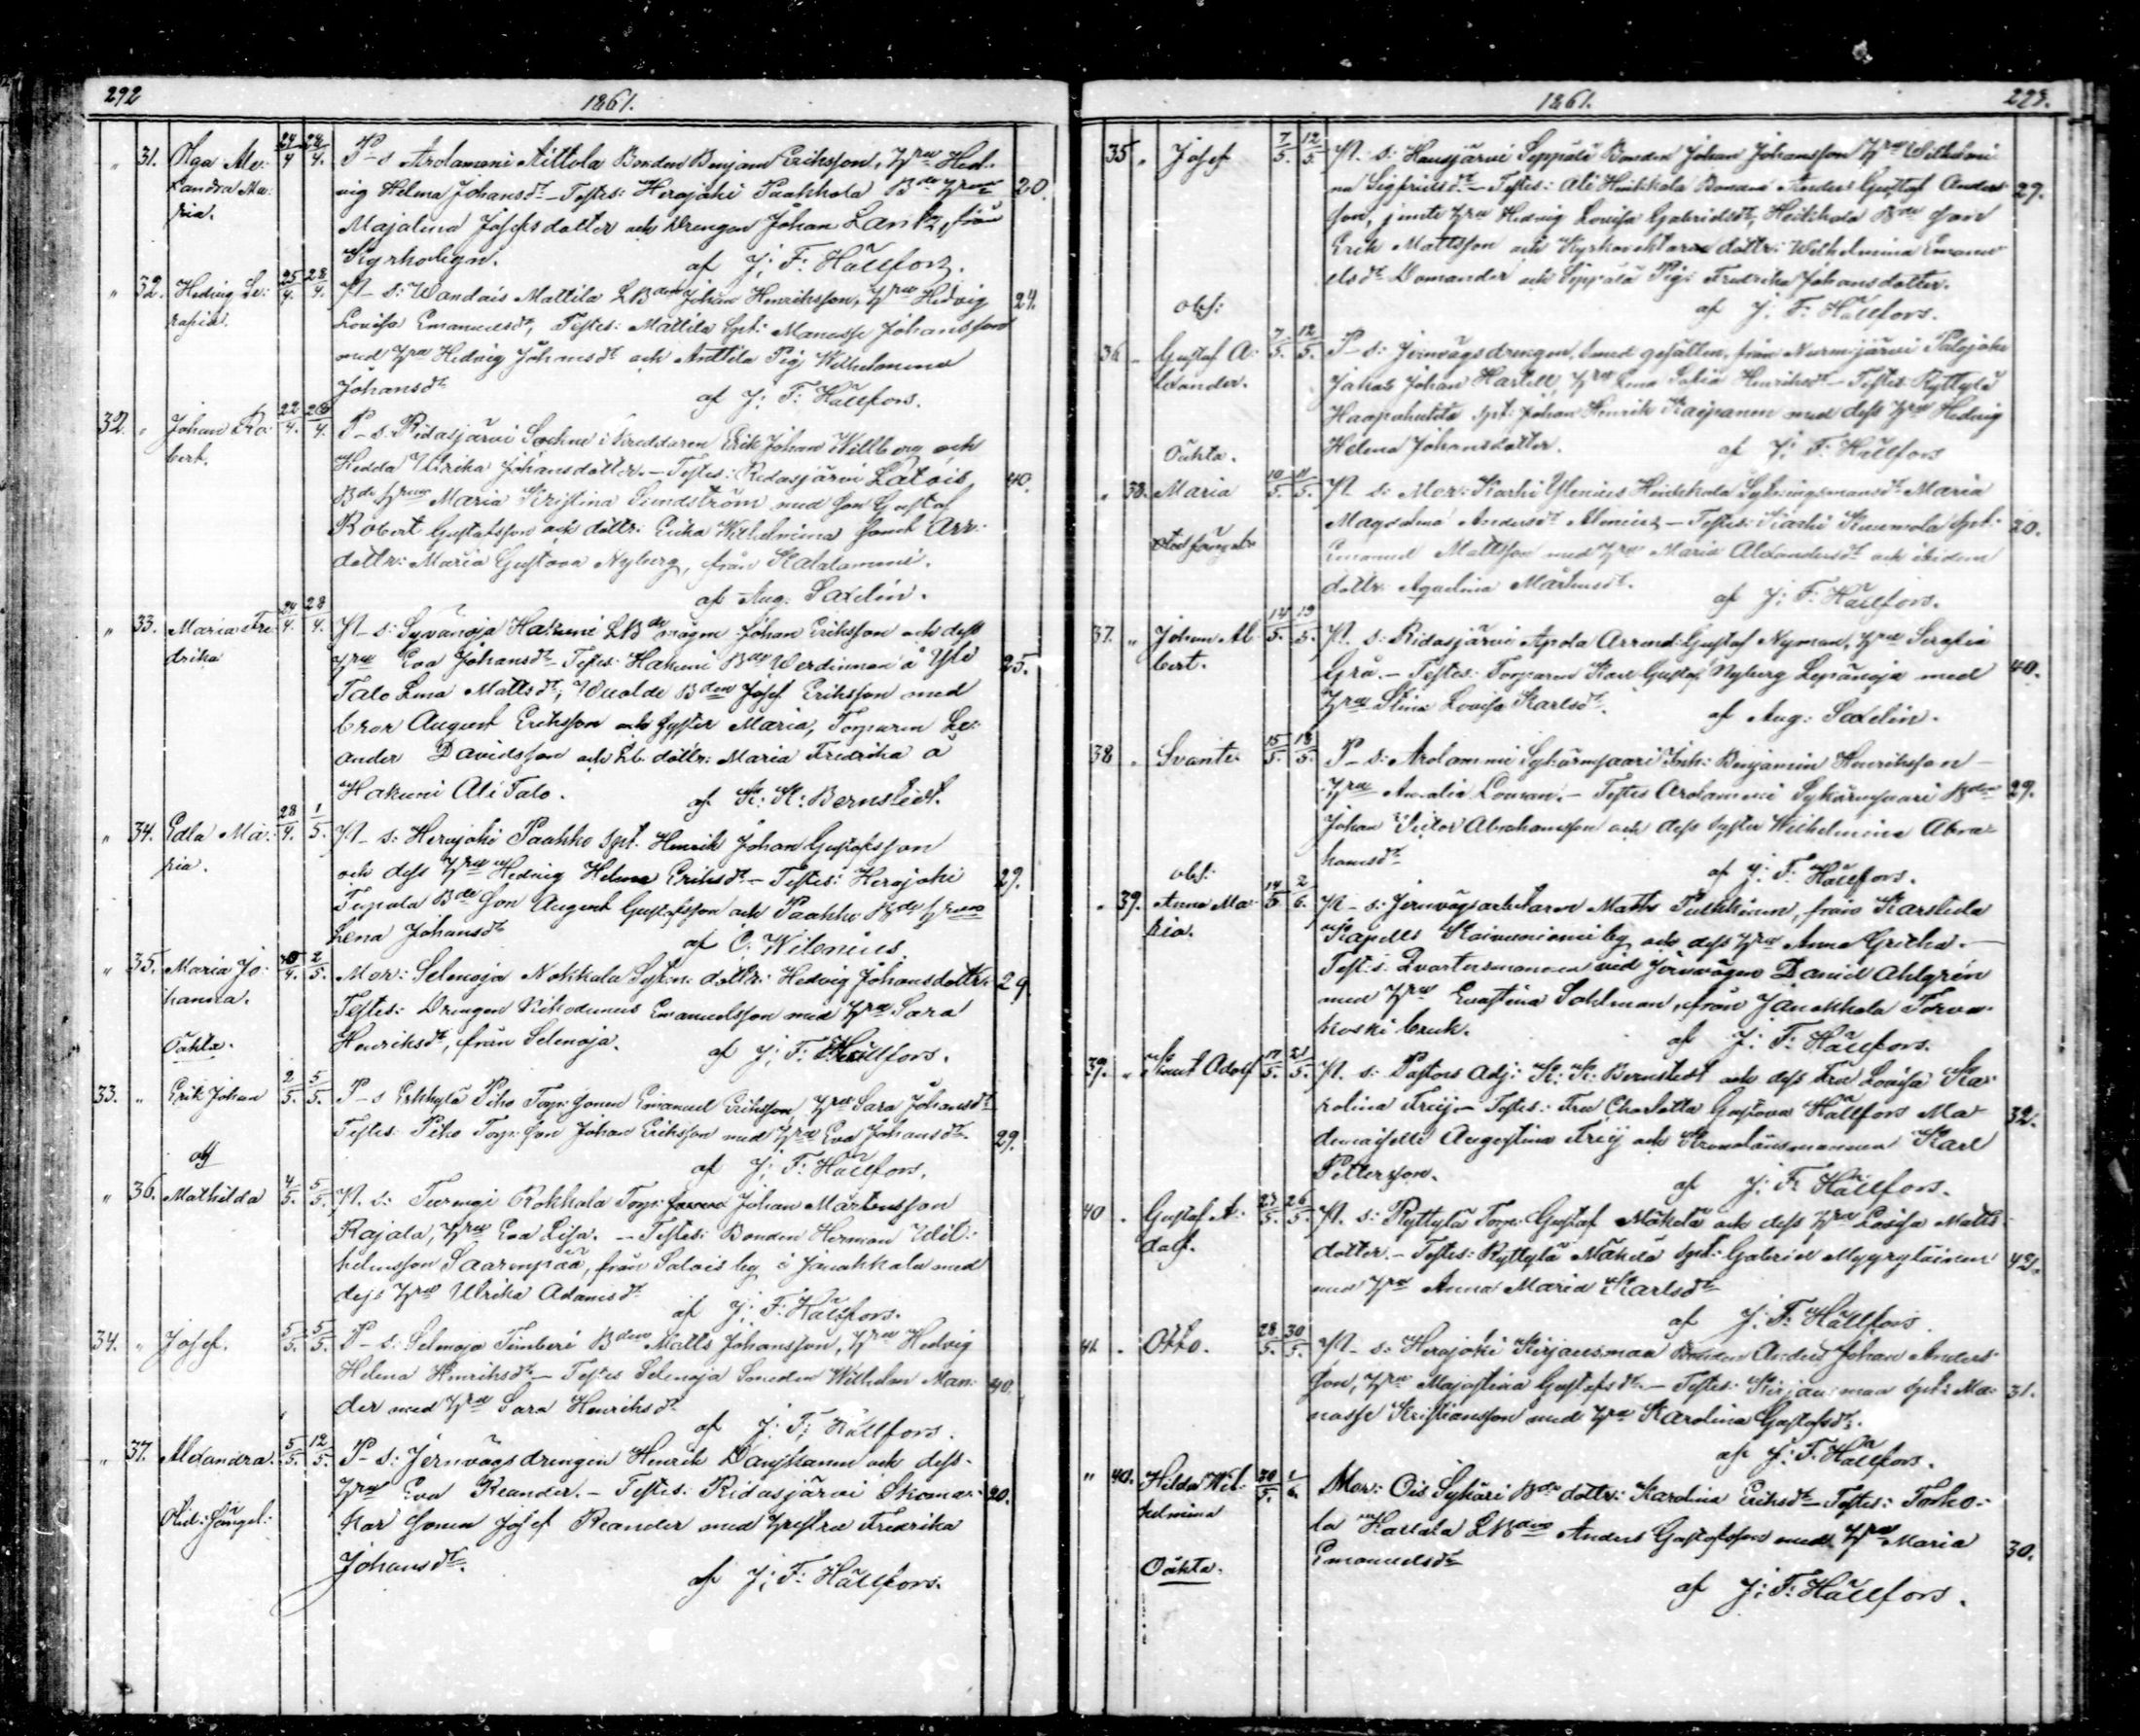 292
1861.
" 31. Olga Alex- 24/4 24/4. P-s Arolammi Aittola Bonden Benjam Eriksson, Hru Hed-
andra Ma- vig Helena Johansdr - Testes: Herajoki Paakkola Bde Hrun 20.
ria. Majalena Josefsdotter och Drengen Johan Lantz, från
Kyrkobyn. af J: F: Hällfors.
" 32. Hedvig Se- 25/4. 28/4. P-s: Wandais Mattila LBden Johan Henriksson, Hru Hedvig 24.
rafia. Lovisa Emanuelsdr, Testes: Mattila Spt: Manasse Johansson
med Hru Hedvig Johansdr och Anttila Pig. Wilhelmina
Johansdr af J: F: Hällfors.
32. " Johan Ro- 22/4. 28/4. P-s. Ridasjärvi Sockne Skreddaren Erik Johan Willberg och
bert. Hedda Ulrika Johansdotter. - Testes: Ridasjärvi Latois 40.
Bde Hrun Maria Kristina Lundström med son Gustaf
Robert Gustafsson och dottr: Erika Wilhelmina samt Arr-
dottr: Maria Gustava Nyberg, från Kalalammi.
af Aug. Saxelin.
" 33. Maria Fre- 24/4. 28/4. P-s: Syvänoja Hakuni LBde mågen Johan Eriksson och dess
drika Hru Eva Johansdr Testes: Hakuni Bde Werdinnan å Yli 25.
Talo Lena Mattsdr, Wuolde Bden Josef Eriksson med
bror August Eriksson och syster Maria, Torparen Le-
ander Davidsson och Lb. dottr: Maria Fredrika å
Hakuni Ali Talo. af K: K: Bernstedt.
" 34. Edla Ma- 28/4. 1/5. P-s: Herajoki Paakko Spt. Henrik Johan Gustafsson
ria. och dess Hru Hedvig Helena Eriksdr - Testes: Herajoki 29.
Tupala Bde Son August Gustafsson och Paakko Bde Hrun
Lena Johansdr af C. Wilenius.
" 35. Maria Jo- 2/5. Mor: Selenoja Nokkala Sytn: dottr: Hedvig Johansdotter 29.
hanna. Testes: Drengen Nikodemus Emanuelsson med Hru Sara
Oäkta. Henriksdr, från Selenoja. af J: F: Hällfors.
33. " Erik Johan 2/5. 5/5. P-s Erkkylä Piho Torp: sonen Emanuel Eriksson, Hru Sara Johansdr
Testes: Piho Torp: son Johan Eriksson med Hru Eva Johansdr 29.
af J: F: Hällfors.
" 36. Mathilda 4/5. 5/5. P. s: Turengi Rokkala Torp: Johan Mårtensson
Rajala, Hru Eva Lisa. - Testes: Bonden Herman Wil-
helmsson Saarenpää, från Salois by i Janakkala med
dess Hru Ulrika Adamsdr af J: F: Hällfors.
34. " Josef. 5/5. 5/5. P-s: Selenoja Timberi Bden Matts Johansson, Hru Hedvig
Helena Henriksdr - Testes Selenoja Smeden Wilhelm Man- 40.
der med Hru Sara Henriksdr
af J: F: Hällfors.
" 37. Alexandra. 5/5. 12/5. P-s: Jernvägsdrengen Henrik Danskanen och dess
Hru Eva Reander. - Testes: Ridasjärvi Skoma- 20.
kar sonen Josef Reander med Hustru Fredrika
Johansdr. af J: F: Hällfors.
1861. 293.
35 " Josef 7/5. 12/5. P. s: Hausjärvi Seppälä Bonden Johan Johansson Hru Wilhelmi-
na Sigfridsdr - Testes: Ali Heikkala Bonden Anders Gustaf Anders- 29.
son, jemte Hru Hedvig Lovisa Gabrielsdr, Heikkala Bde son
Erik Mattsson och Kyrkovaktaren dottr: Wilhelmina Emanu-
elsdr Domander och Seppälä Pig: Fredrika Johansdotter.
obs: af J: F: Hällfors.
36 - Gustaf A- 7/5. 12/5. P-s: Jernvägsdrengen, smed gesällen, från Nurmijärvi Palojoki
lexander. Johan Hartell, Hru Lena Sofia Henriksdr - Testes: Ryttylä
Haapahuhta Spt: Johan Henrik Kaipanen med dess Hru Hedvig
Helena Johansdotter. af J: F: Hällfors
Oäkta.
" 38. Maria 10/5. 11/5. P. s: Mor: Karhi Ylenius Heikkala Sytningsmansdr Maria
Magdalena Andersdr Alenius - Testes: Karhi Kuumola Spt: 20.
Emanuel Mattsson med Hru Maria Alexandersdr och ibidem
dottr. Agatina Mårtensdr. af J: F: Hällfors.
37. " Johan Al- 14/5. 19/5. P. s: Ridasjärvi Apola Arrend: Gustaf Nyman, Hru Serafia
bert. Grå. - Testes: Torparen Karl Gustaf Nyberg Lepänoja med 40.
Hru Stina Lovisa Karlsdr. af Aug: Saxelin.
38 " Svante. 15/5. 18/5. P-s: Arolammi Sykärinsaari Inh: Benjamin Henriksson -
Hru Amalia Loman. - Testes Arolammi Sykärinsaari Bden 29.
Johan Victor Abrahamsson och dess Syster Wilhelmina Abra-
hamsdr
obs: af J: F: Hällfors.
" 39. Anna Ma- 14/5 2/6. P-s: Jernvägsarbetaren Matts Pulkkinen, från Karstula
ria. Kapells by och dess Hru Anna Greta.
Test:s: Quartersmannen vid Jernvägen Daniel Ahlgren
med Hru Evastina Sahlman, från Janakkala Terva-
koski bruk. af J: F: Hällfors.
39. " Knut Adolf 17/5. 21/5. P. s: Pastors Adj: K: K: Bernstedt och dess Fru Lovisa Ka-
rolina Freij - Testes: Fru Charlotta Gustava Hällfors Ma- 32.
demoiselle Augustina Freij och Kronolänsmannen Karl
Pettersson. af J: F: Hällfors.
40 " Gustaf A- 23/5. 26/5. P. s: Ryttylä Torp: Gustaf Mäkelä och dess Hru Lovisa Matts-
dolf. dotter. - Testes: Ryttylä Mäkelä Spt: Gabriel Myyryläinen 42.
med Hru Anna Maria Karlsdr
af J: F: Hällfors.
41 " Otto. 28/5. 30/5. P-s: Herajoki Kirjausmaa Bonden Anders Johan Anders-
son, Hru Majastina Gustafsdr. - Testes: Kirjausmaa Spt: Ma- 31.
nasse Kristiansson med Hru Karolina Gustafsdr.
af J: F: Hällfors.
" 40. Hilda Wil- 30/5. 1/6. Mor: Ois Sykäri Bde dottr: Karolina Eriksdr - Testes: Torho-
helmina la Hattala LBden Anders Gustafsson med Hru Maria 30.
Oäkta. Emanuelsdr
af J: F: Hällfors.